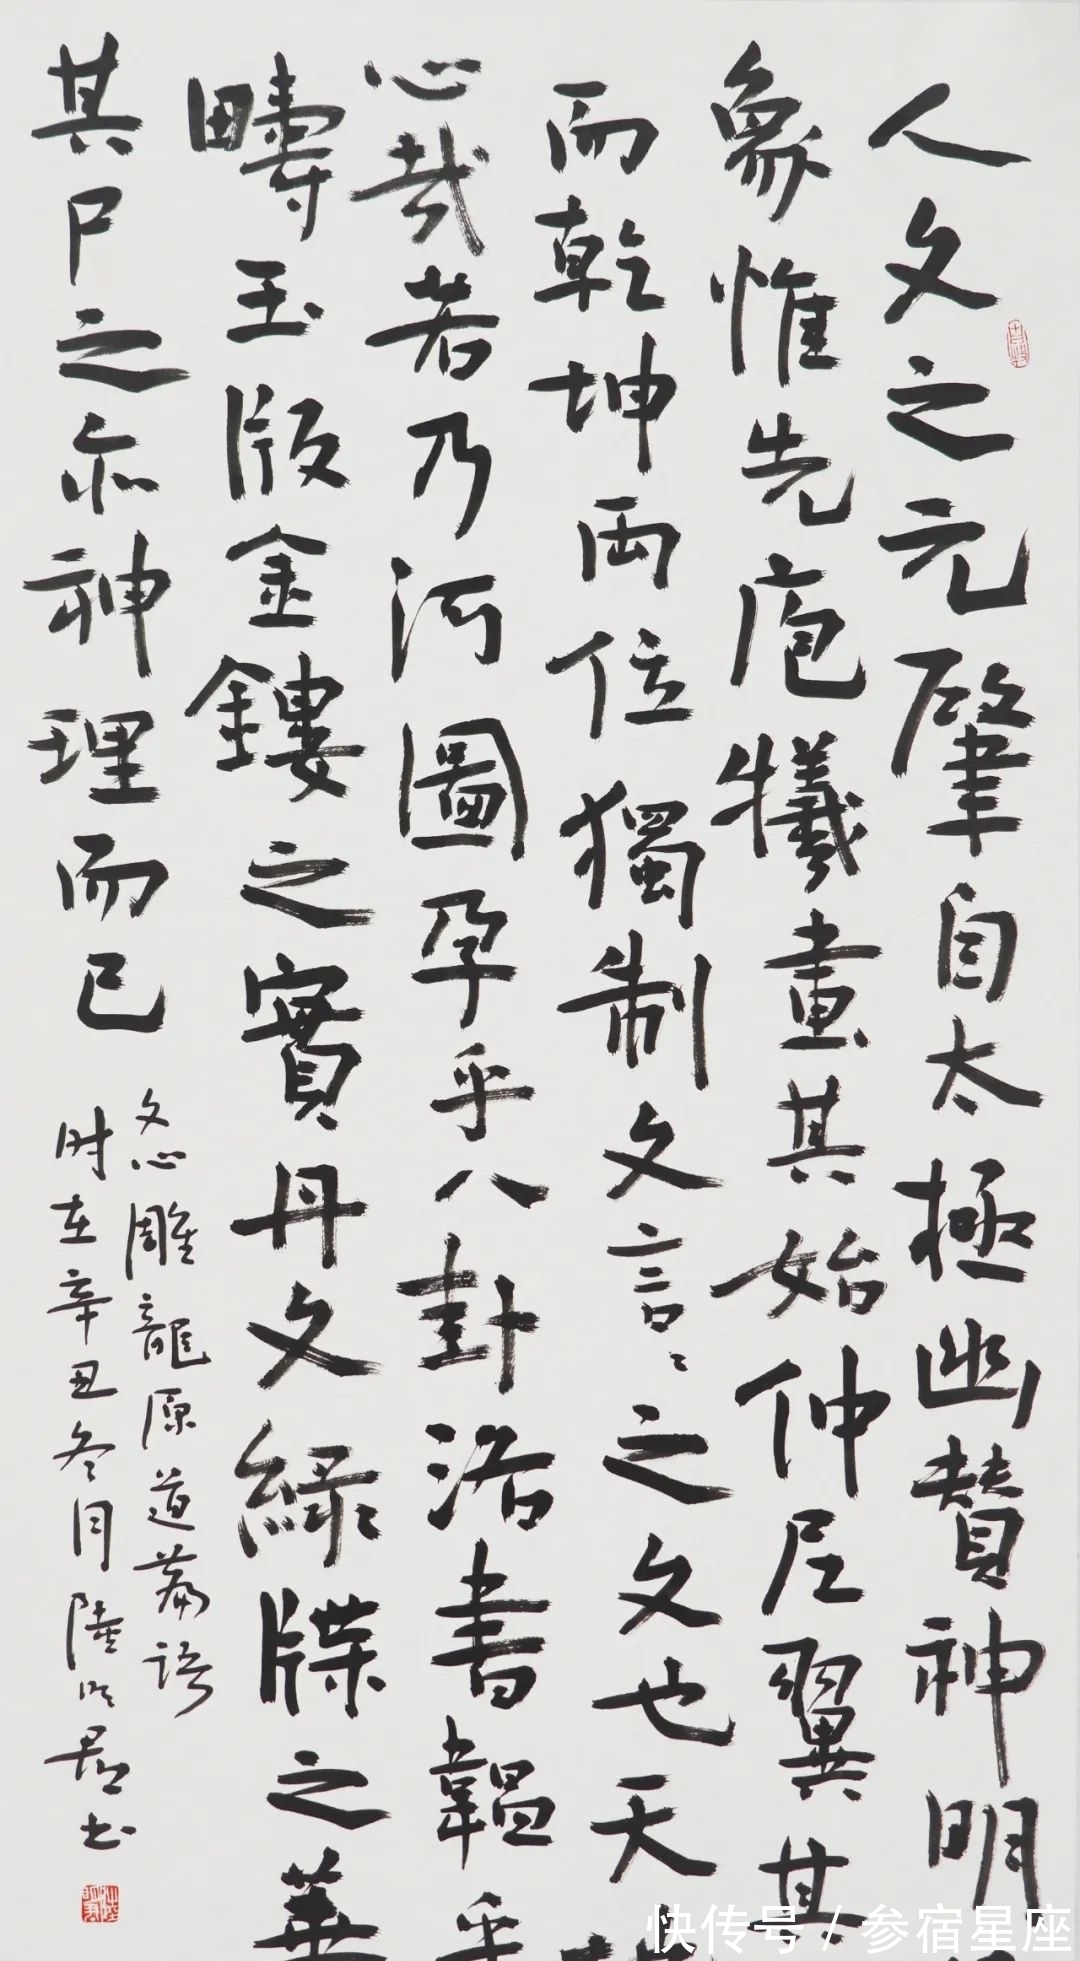 人文之元肇自太極幽贊神明
象惟先庖犧畫其始仲尼翼其
而乾坤兩位獨制文言〻之文也天
心哉若乃河圖孕乎八卦洛書韞乎
疇玉版金鏤之實丹文綠牒之華
其尸之亦神理而已
文心雕龍原道篇語
时在辛丑冬月陸明君书
快传号 / 参宿星座